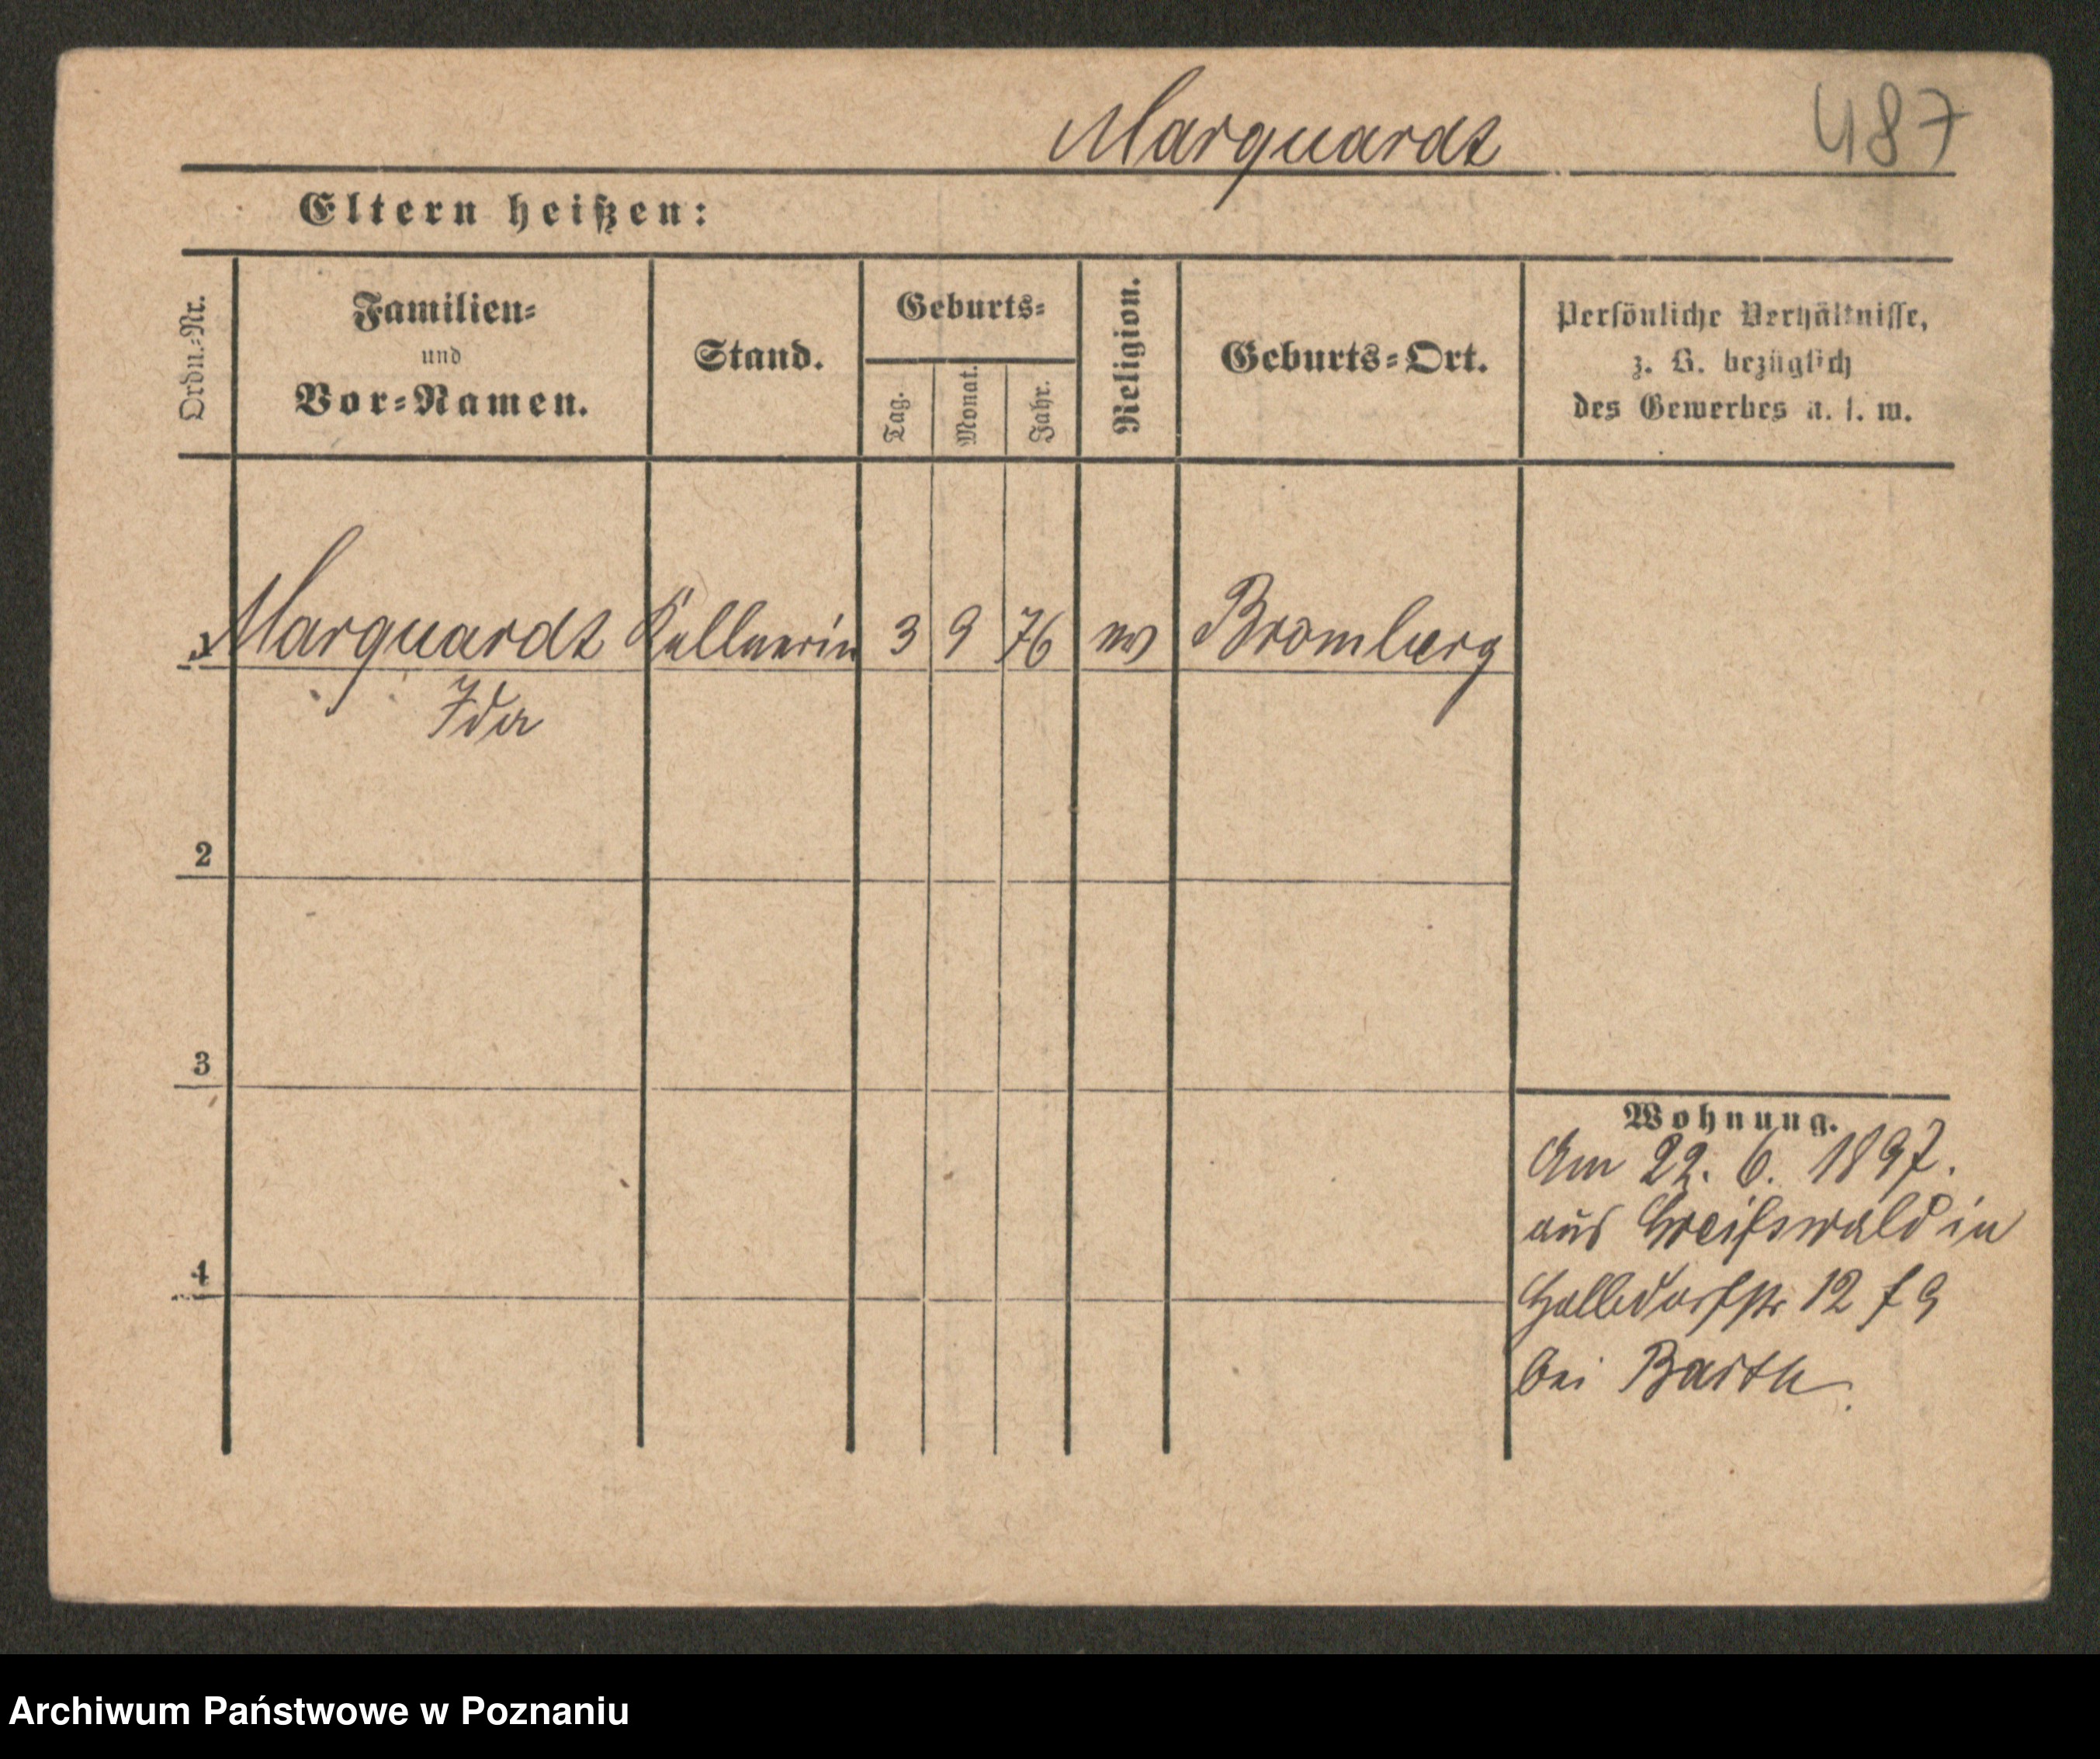 Marquardt 487
Eltern heißen:
Ordn.-Nr.
Familien-
und
Vor-Namen.
Stand.
Geburts-
Tag.
Monat.
Jahr.
Religion.
Geburts-Ort.
Persönliche Verhältnisse,
z. B. bezüglich
des Gewerbes u. s. w.
1 Marquardt Kellnerin 3 9 76 ev Bromberg
Ida
2
3
4
Wohnung.
Am 22. 6. 1897.
aus Greifswald in
Halldorfstr 12 f 9
bei Barth.
Archiwum Państwowe w Poznaniu